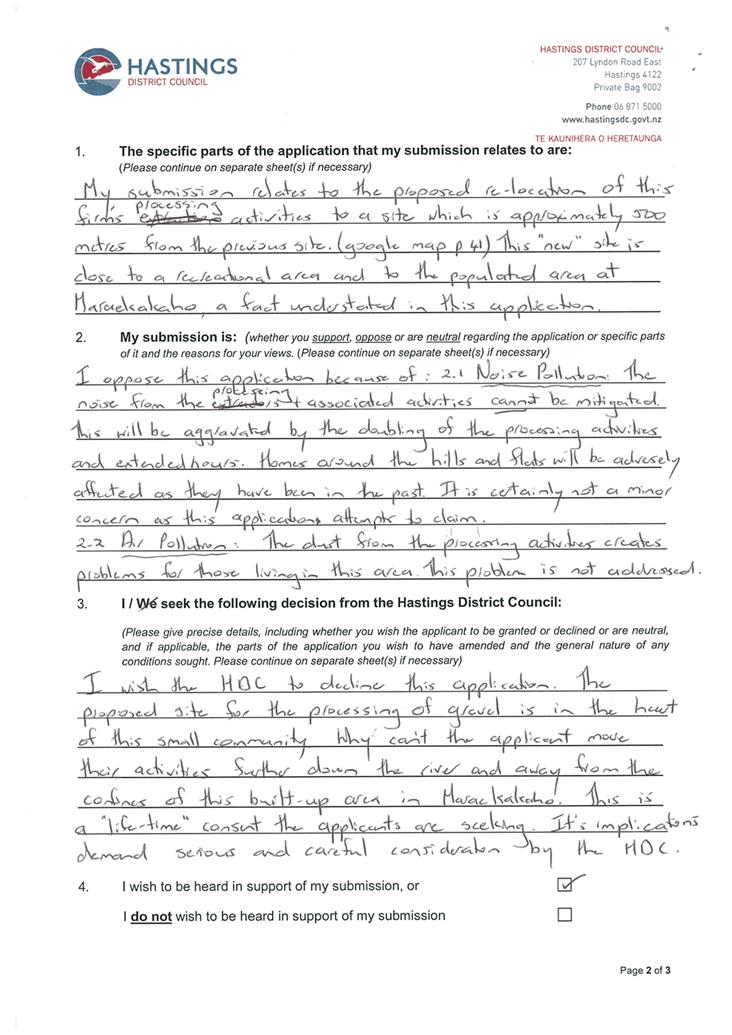 HASTINGS
DISTRICT COUNCIL
HASTINGS DISTRICT COUNCIL
207 Lyndon Road East
Hastings 4122
Private Bag 9002
Phone 06 871 5000
www.hastingsdc.govt.nz
TE KAUNIHERA O HERETAUNGA
1. The specific parts of the application that my submission relates to are:
(Please continue on separate sheet(s) if necessary)
My submission relates to the proposed re-location of this
processing
firms activities to a site which is approximately 500
metres from the previous site. (google map p 41) This "new" site is
close to a recreational area and to the populated area at
Maraekakaho, a fact understated in this application.
2. My submission is: (whether you support, oppose or are neutral regarding the application or specific parts
of it and the reasons for your views. (Please continue on separate sheet(s) if necessary)
I oppose this application because of : 2.1 Noise Pollution: The
processing
noise from the + associated activities cannot be mitigated.
This will be aggravated by the doubling of the processing activities
and extended hours. Homes around the hills and flats will be adversely
affected as they have been in the past. It is certainly not a minor
concern as this applications attempts to claim.
2.2 Air Pollution: The dust from the processing activities creates
problems for those living in this area. This problem is not addressed.
3. I / We seek the following decision from the Hastings District Council:
(Please give precise details, including whether you wish the applicant to be granted or declined or are neutral,
and if applicable, the parts of the application you wish to have amended and the general nature of any
conditions sought. Please continue on separate sheet(s) if necessary)
I wish the HDC to decline this application. The
proposed site for the processing of gravel is in the heart
of this small community. Why can't the applicant move
their activities further down the river and away from the
confines of this built-up area in Maraekakaho. This is
a "life-time" consent the applicants are seeking. It's implications
demand serious and careful consideration by the HDC.
4. I wish to be heard in support of my submission, or
I do not wish to be heard in support of my submission
Page 2 of 3